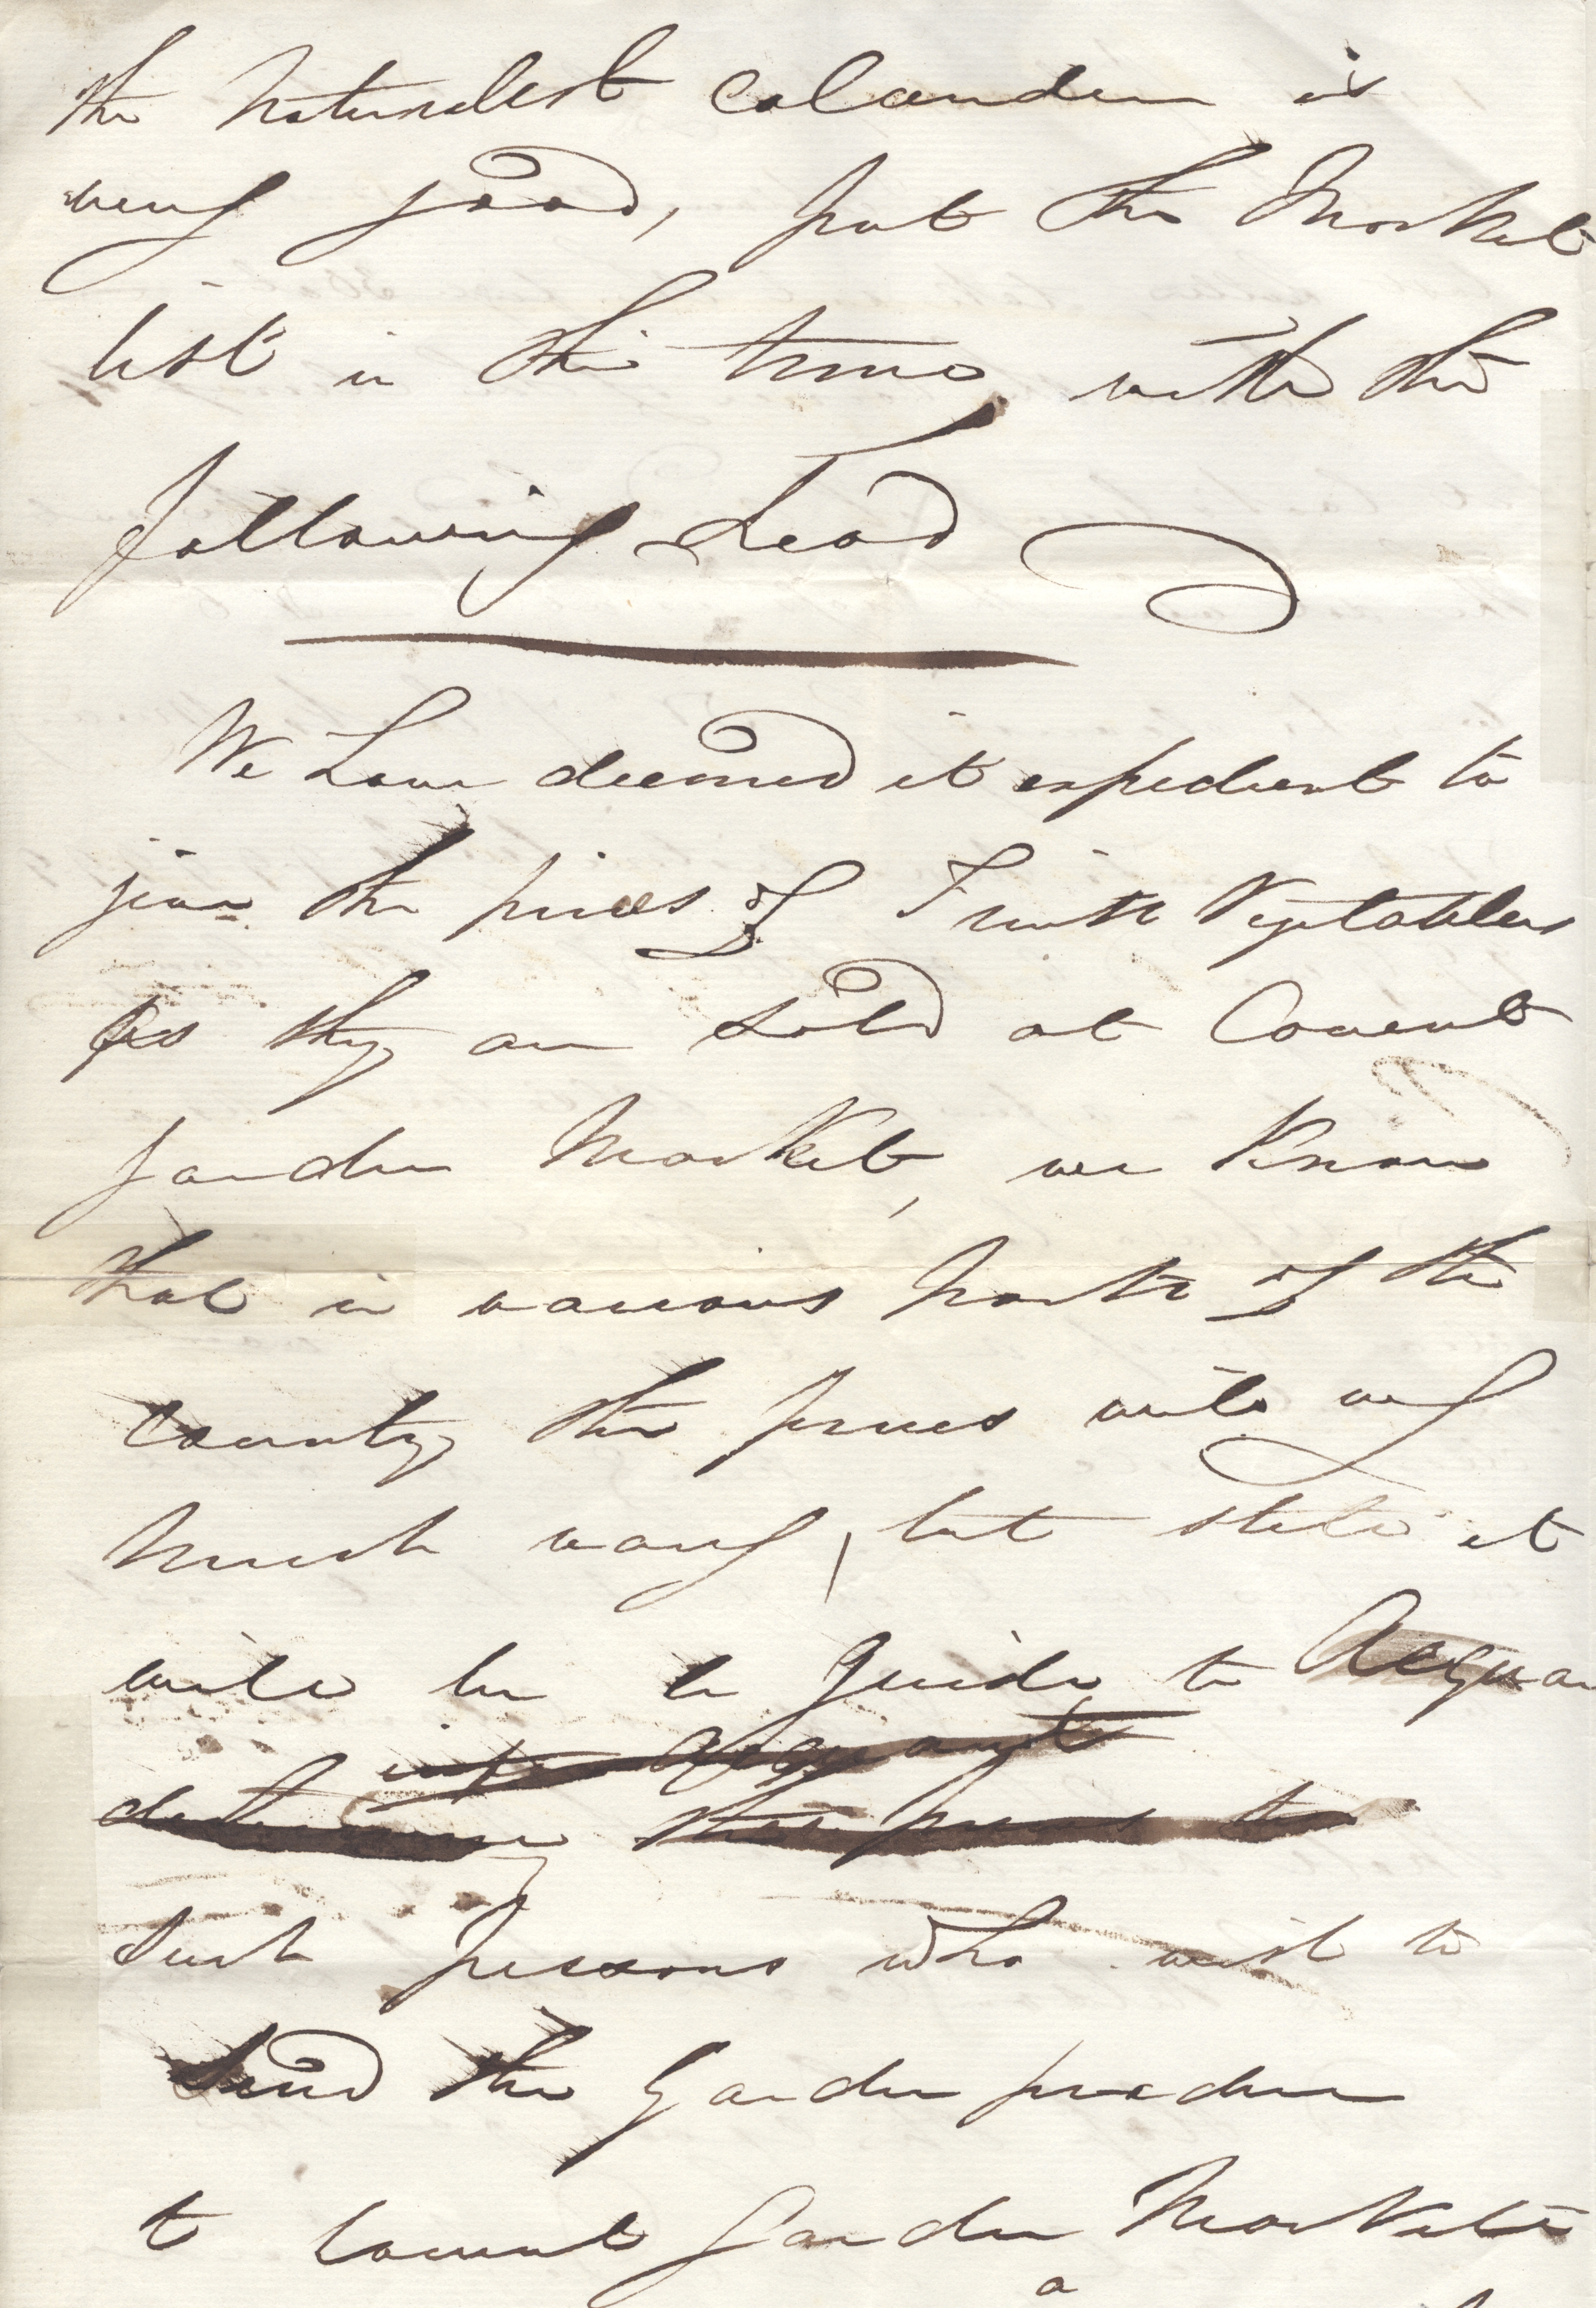 the naturalest Calander is
very good, put the Market
list in this time, with the
following head
We have deemed it expedient to
give the prices of Fruit & Vegetables
as they are sold at Covent
garden Market, we know
that in various parts of the
county, the prices will very
much vary, but still it
will be a guide to Acquaint
Acquaint
determine their prices to
Such persons who wish to
Send the Garden produce
to Covent garden Market
a